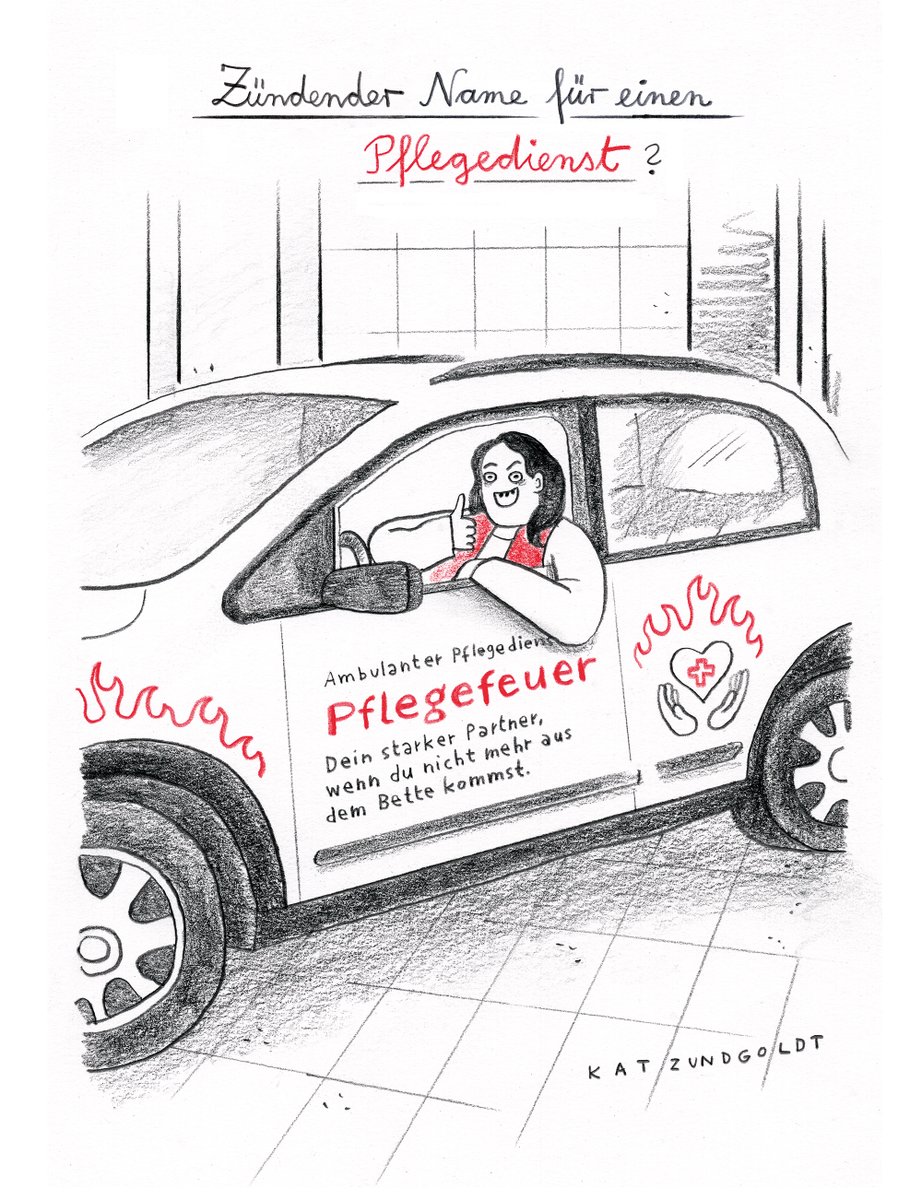 Zündender Name für einen
Pflegedienst?
Ambulanter Pflegediens
Pflegefeuer
Dein starker Partner,
wenn du nicht mehr aus
dem Bette kommst.
KATZUNDGOLDT